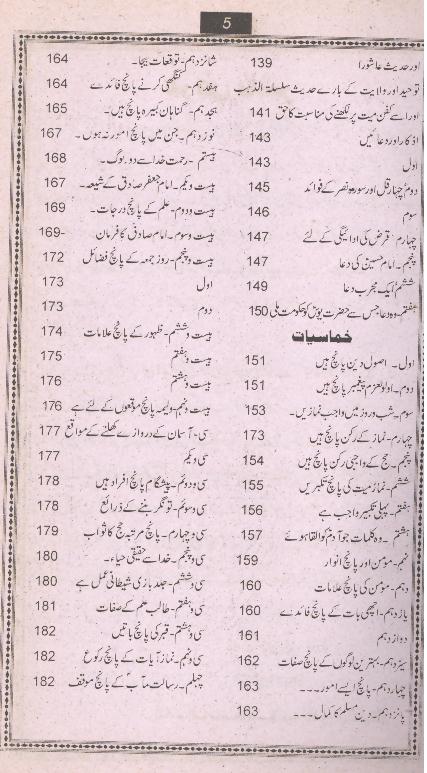 5
اور حدیث عاشورا 139
توحید اور ولایت کے بارے حدیث سلسلۃ الذہب
اور اسے کفن میت پر لکھنے کی مناسبت کا حق 141
اذکار اور دعائیں 143
اول 143
دوم چہار قل اور سورہ نصر کے فوائد 145
سوم 146
چہارم قرض کی ادائیگی کے لئے 147
پنجم۔ امام حسینؑ کی دعا 147
ششم ایک مجرب دعا 149
ہفتم۔ وہ دعا جس سے حضرت یوسفؑ کو حکومت ملی 150
خماسیات
اول۔ اصول دین پانچ ہیں 151
دوم۔ اولو العزم پیغمبر پانچ ہیں 151
سوم۔ شب و روز میں واجب نمازیں۔ 153
چہارم۔ نماز کے رکن پانچ ہیں 173
پنجم۔ حج کے واجبی رکن پانچ ہیں 154
ششم۔ نماز میت کی پانچ تکبریں 155
ہفتم۔ پہلی تکبیر واجب ہے 156
ہشتم۔ وہ کلمات جو آدمؑ کو القا ہوئے 157
نہم۔ مومن اور پانچ انوار 159
دہم۔ مومن کی پانچ علامات 160
یازدہم۔ اچھی بات کے پانچ فائدے 160
دوازدہم 161
سیزدہم۔ بہترین لوگوں کے پانچ صفات 162
چہاردہم۔ پانچ ایسے امور۔۔۔ 163
پانزدہم۔ دین مسلم کا کمال۔۔۔ 163
شانزدہم۔ توقعات بیجا۔ 164
ہفدہم۔ کنگھی کرنے پانچ فائدے 164
ہجدہم۔ گناہان کبیرہ پانچ ہیں۔ 165
نوزدہم۔ جن میں پانچ امور نہ ہوں۔ 167
بیستم۔ رحمت خدا سے دور لوگ۔ 168
بیست و یکم۔ امام جعفر صادقؑ کے شیعہ۔ 167
بیست و دوم۔ علم کے پانچ درجات۔ 169
بیست و سوم۔ امام صادقؑ کا فرمان 169-
بیست و پنجم۔ روز جمعہ کے پانچ فضائل 172
اول 173
دوم 173
بیست و ششم۔ ظہور کے پانچ علامات 174
بیست و ہفتم 175
بیست و ہشتم 176
بیست و نہم۔ ولیمہ پانچ موقعوں کے لئے ہے 176
سی۔ آسمان کے دروازے کھلنے کے مواقع 177
سی و یکم 177
سی و دوئم۔ پیشگام پانچ افراد ہیں 178
سی و سوئم۔ تونگر بننے کے ذرائع 178
سی و چہارم۔ پانچ مرتبہ حج کا ثواب 179
سی و پنجم۔ خدا سے حقیقی حیاء۔ 180
سی و ششم۔ جلد بازی شیطانی عمل ہے 180
سی و ہفتم۔ طالب علم کے صفات 181
سی و ہشتم۔ قبر کی پانچ باتیں 182
سی و نہم۔ نماز آیات کے پانچ رکوع 182
چہلم۔ رسالت مآبؐ کے پانچ موقف 182